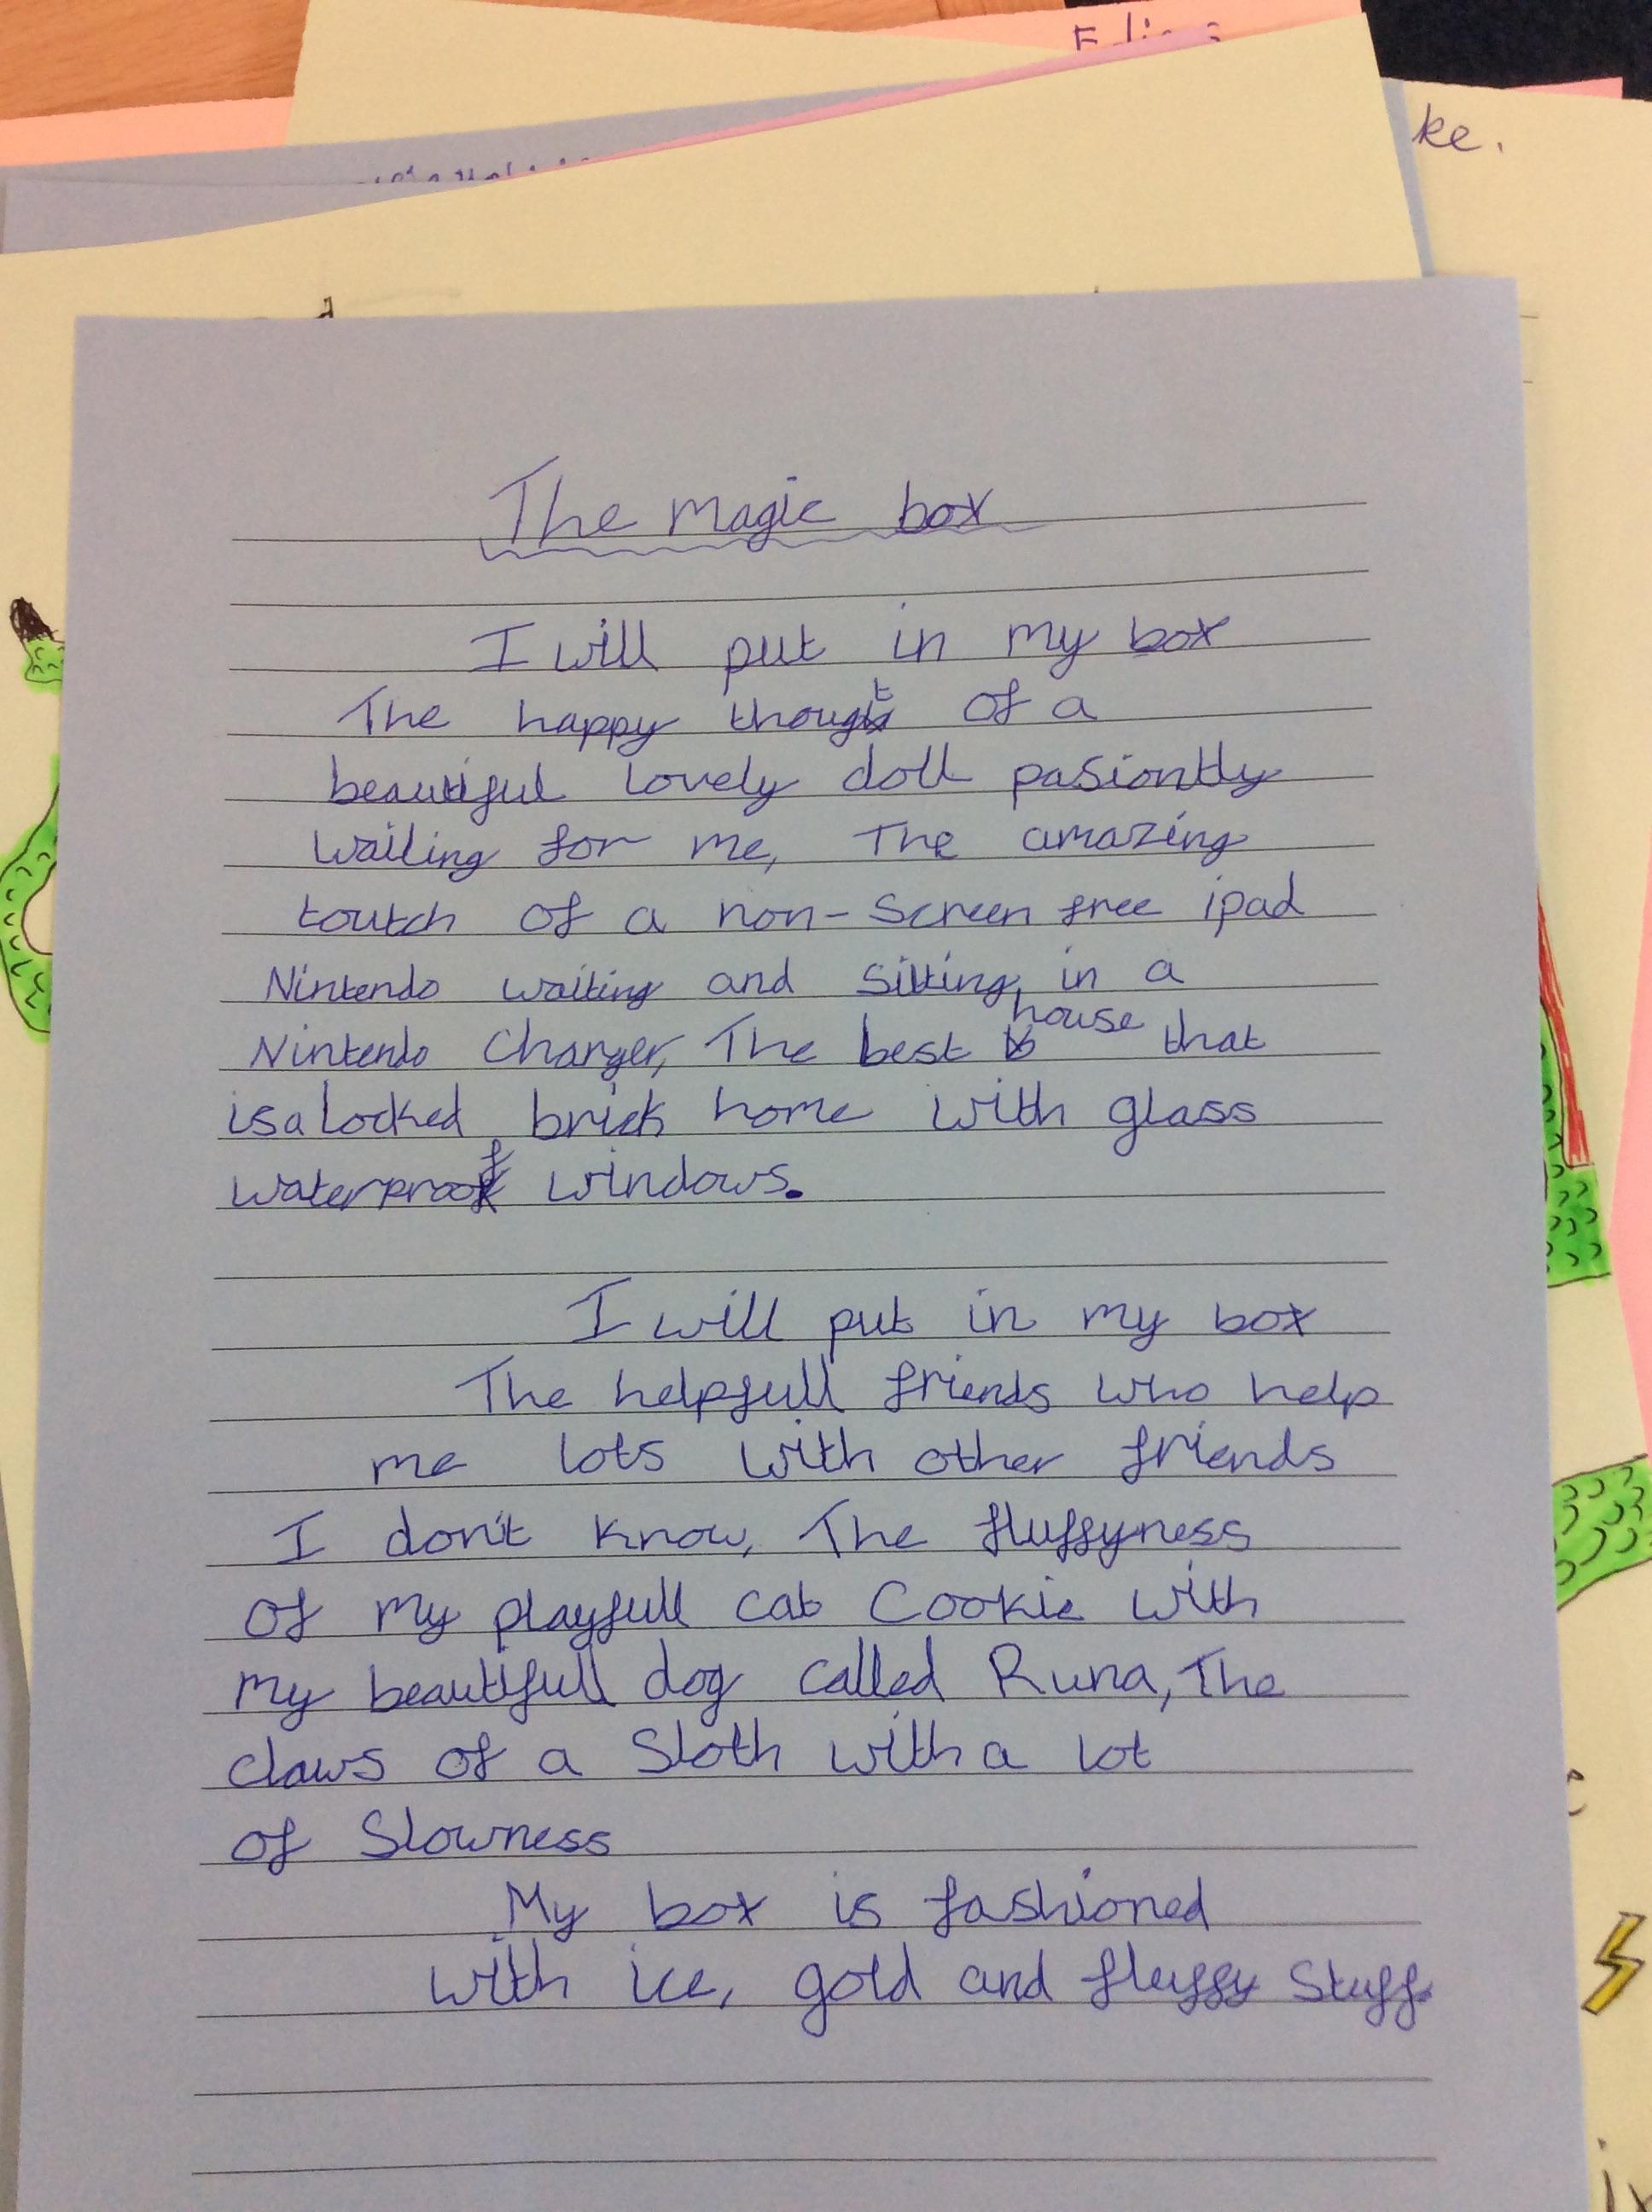 ke.
The magic box
I will put in my box
The happy thougt of a
beautiful lovely doll pasiontly
waiting for me, The amazing
toutch of a non-screen free ipad
Nintendo waiting and sitting in a
Nintendo Charger, The best house that
is a locked brick home with glass
waterproof windows.
I will put in my box
The helpfull friends who help
me lots with other friends
I don't know, The fluffyness
of my playfull cat Cookie with
my beautifull dog called Runa, The
claws of a Sloth with a lot
of Slowness
My box is fashioned
with ice, gold and fluffy Stuff.